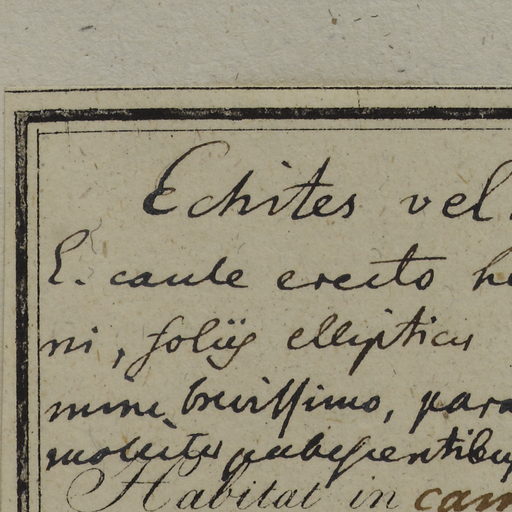 Echites vel
E. caule erecto he
ni, foliis ellipticis
mine brevissimo, para
molliter pubescentibus
Habitat in cam